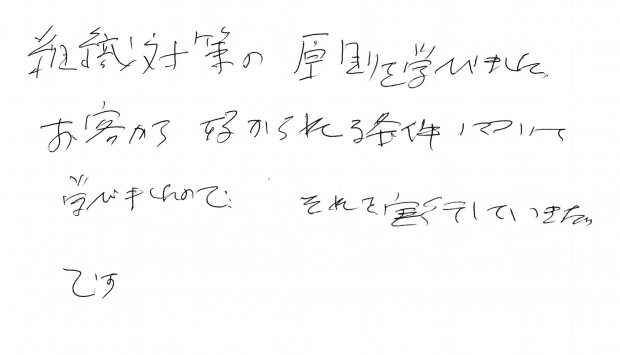 組織対策の 原則を学びました
お客から 好かられる条件について
学びましたので、 それを実行していきたい
です